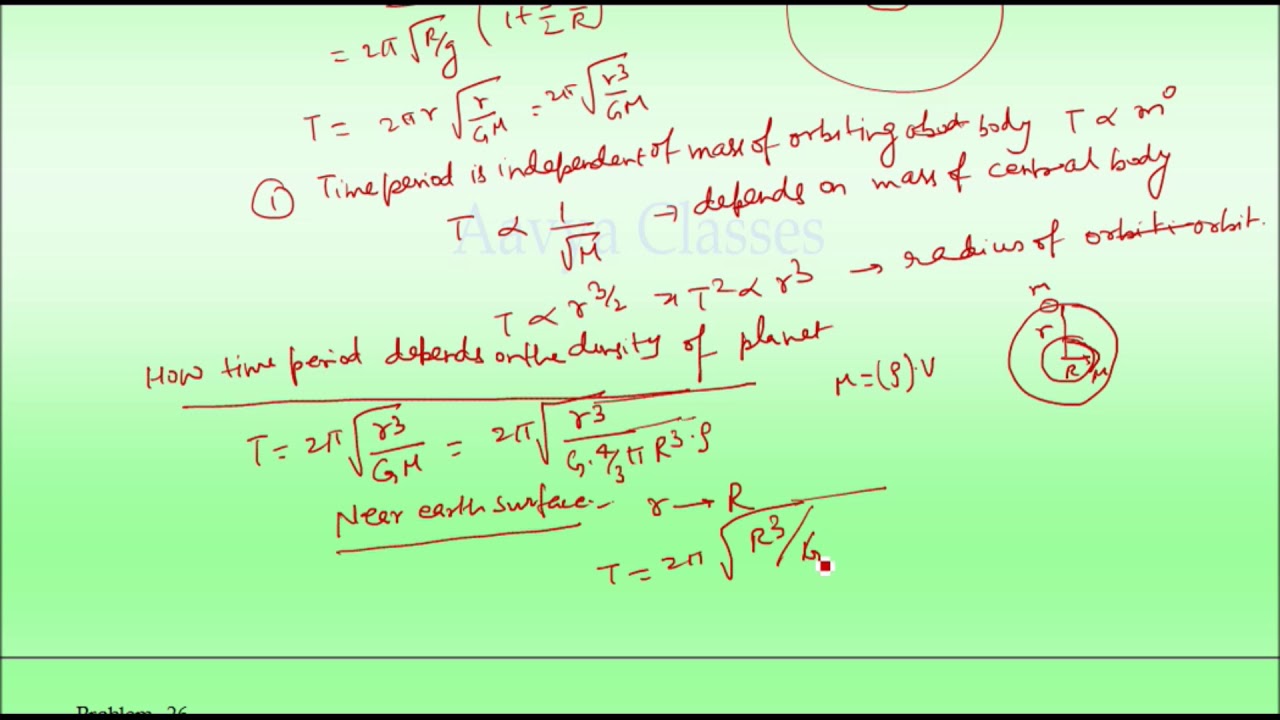 = 2π √R/g (1+ 3/2 h/R)
T = 2πr √(r/GM) = 2π √(r³/GM)
① Time period is independent of mass of orbiting about body T ∝ m⁰
T ∝ 1/√M → depends on mass of central body
Aavya Classes
T ∝ r^3/2 ⇒ T² ∝ r³ → radius of orbiti orbit.
m
r
R M
How time period depends on the density of planet
M = (ρ)·V
T = 2π √(r³/GM) = 2π √(r³/(G·4/3 π R³·ρ))
Near earth surface:- r → R
T = 2π √(R³/G